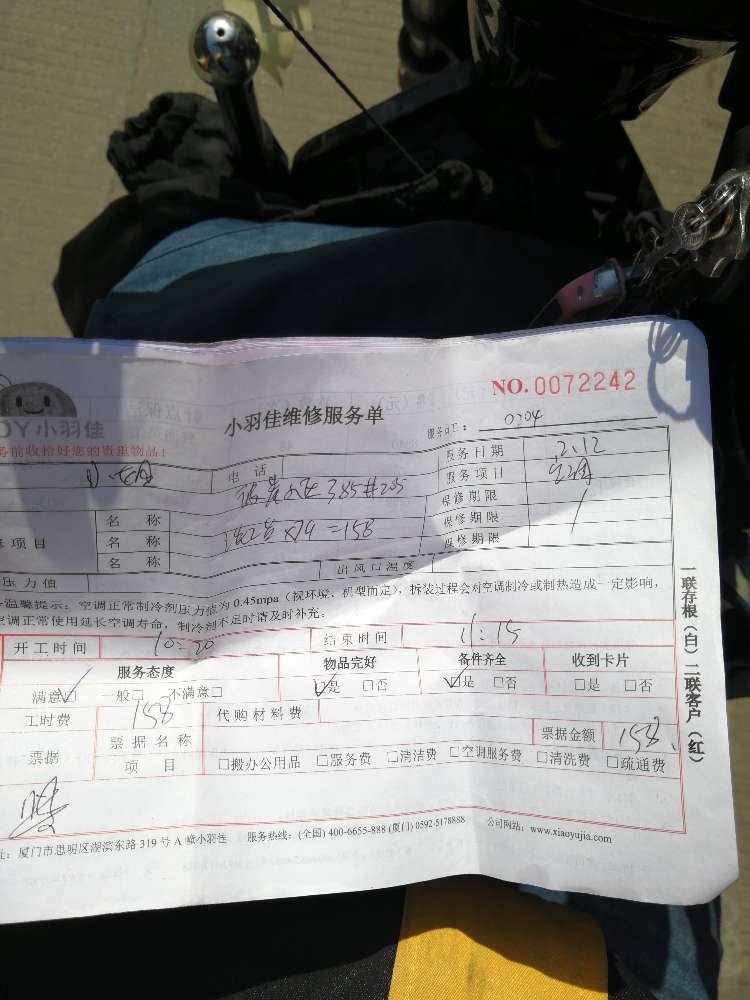 NO. 0072242
小羽佳维修服务单
服务员工： 0204
OY小羽佳
务前收拾好您的贵重物品！
电 话
服务日期 2.12
服务项目
385#205
保修期限
名 称
保修期限
项目 名 称 ×79=158
保修期限
名 称
压力值 出风口温度
温馨提示：空调正常制冷剂压力值为0.45mpa（视环境、机型而定），拆装过程会对空调制冷或制热造成一定影响，
空调正常使用延长空调寿命，制冷剂不足时请及时补充。
开工时间 10:20 结束时间 11:15
服务态度 物品完好 备件齐全 收到卡片
满意☑ 一般□ 不满意□ ☑是 □否 ☑是 □否 □是 □否
工时费 158 代购材料费
票据 票据名称 票据金额 158
项 目 □搬办公用品 □服务费 □清洁费 □空调服务费 □清洗费 □疏通费
址：厦门市思明区湖滨东路 319 号 A 幢小羽佳 服务热线：(全国) 400-6655-888 (厦门) 0592-5178888 公司网站：www.xiaoyujia.com
一联存根（白）二联客户（红）